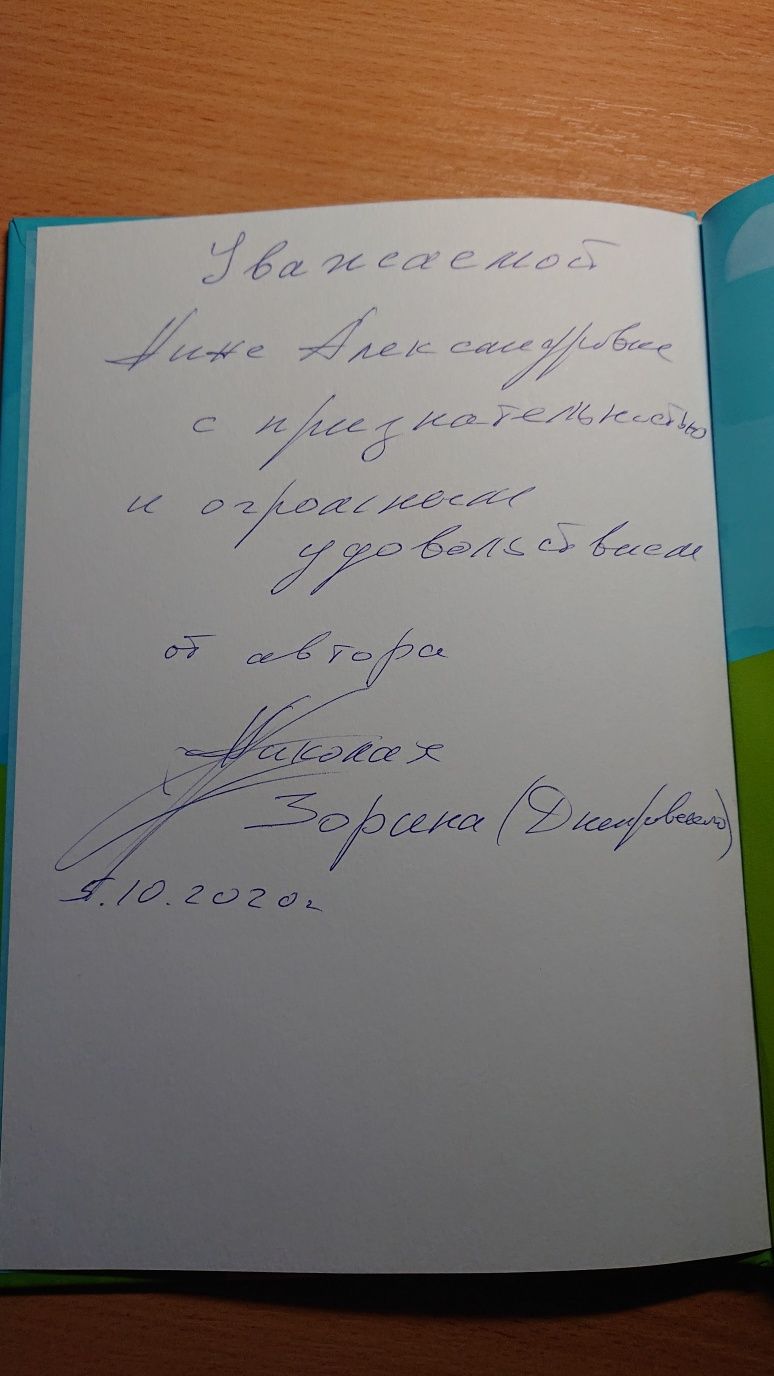 Уважаемой
Нине Александровне
с признательностью
и огромным
удовольствием
от автора
Николая
Зорина (Днепровского)
.10.2020г